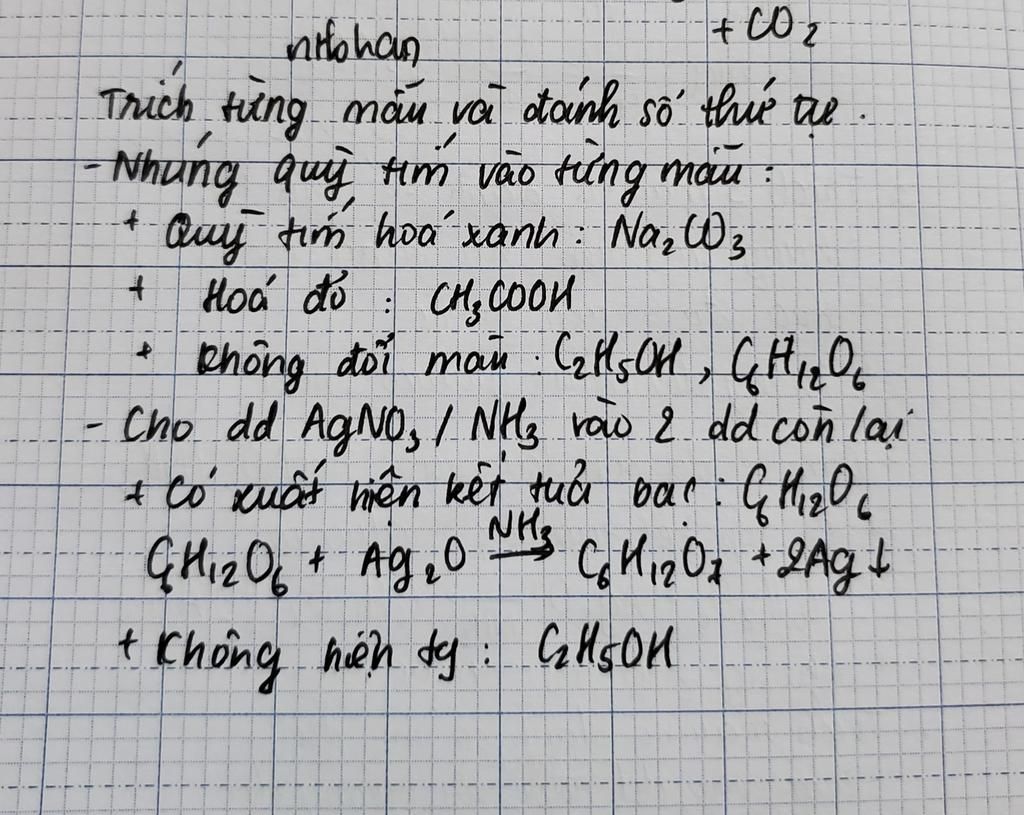 + CO₂
Trích từng mẫu và đánh số thứ tự.
- Nhúng quỳ tím vào từng mẫu:
+ Quỳ tím hoá xanh: Na₂CO₃
+ Hoá đỏ: CH₃COOH
+ Không đổi màu: C₂H₅OH, C₆H₁₂O₆
- Cho dd AgNO₃ / NH₃ vào 2 dd còn lại
+ Có xuất hiện kết tuả bạc: C₆H₁₂O₆
C₆H₁₂O₆ + Ag₂O –NH₃→ C₆H₁₂O₇ + 2Ag↓
+ Không hiện tg: C₂H₅OH